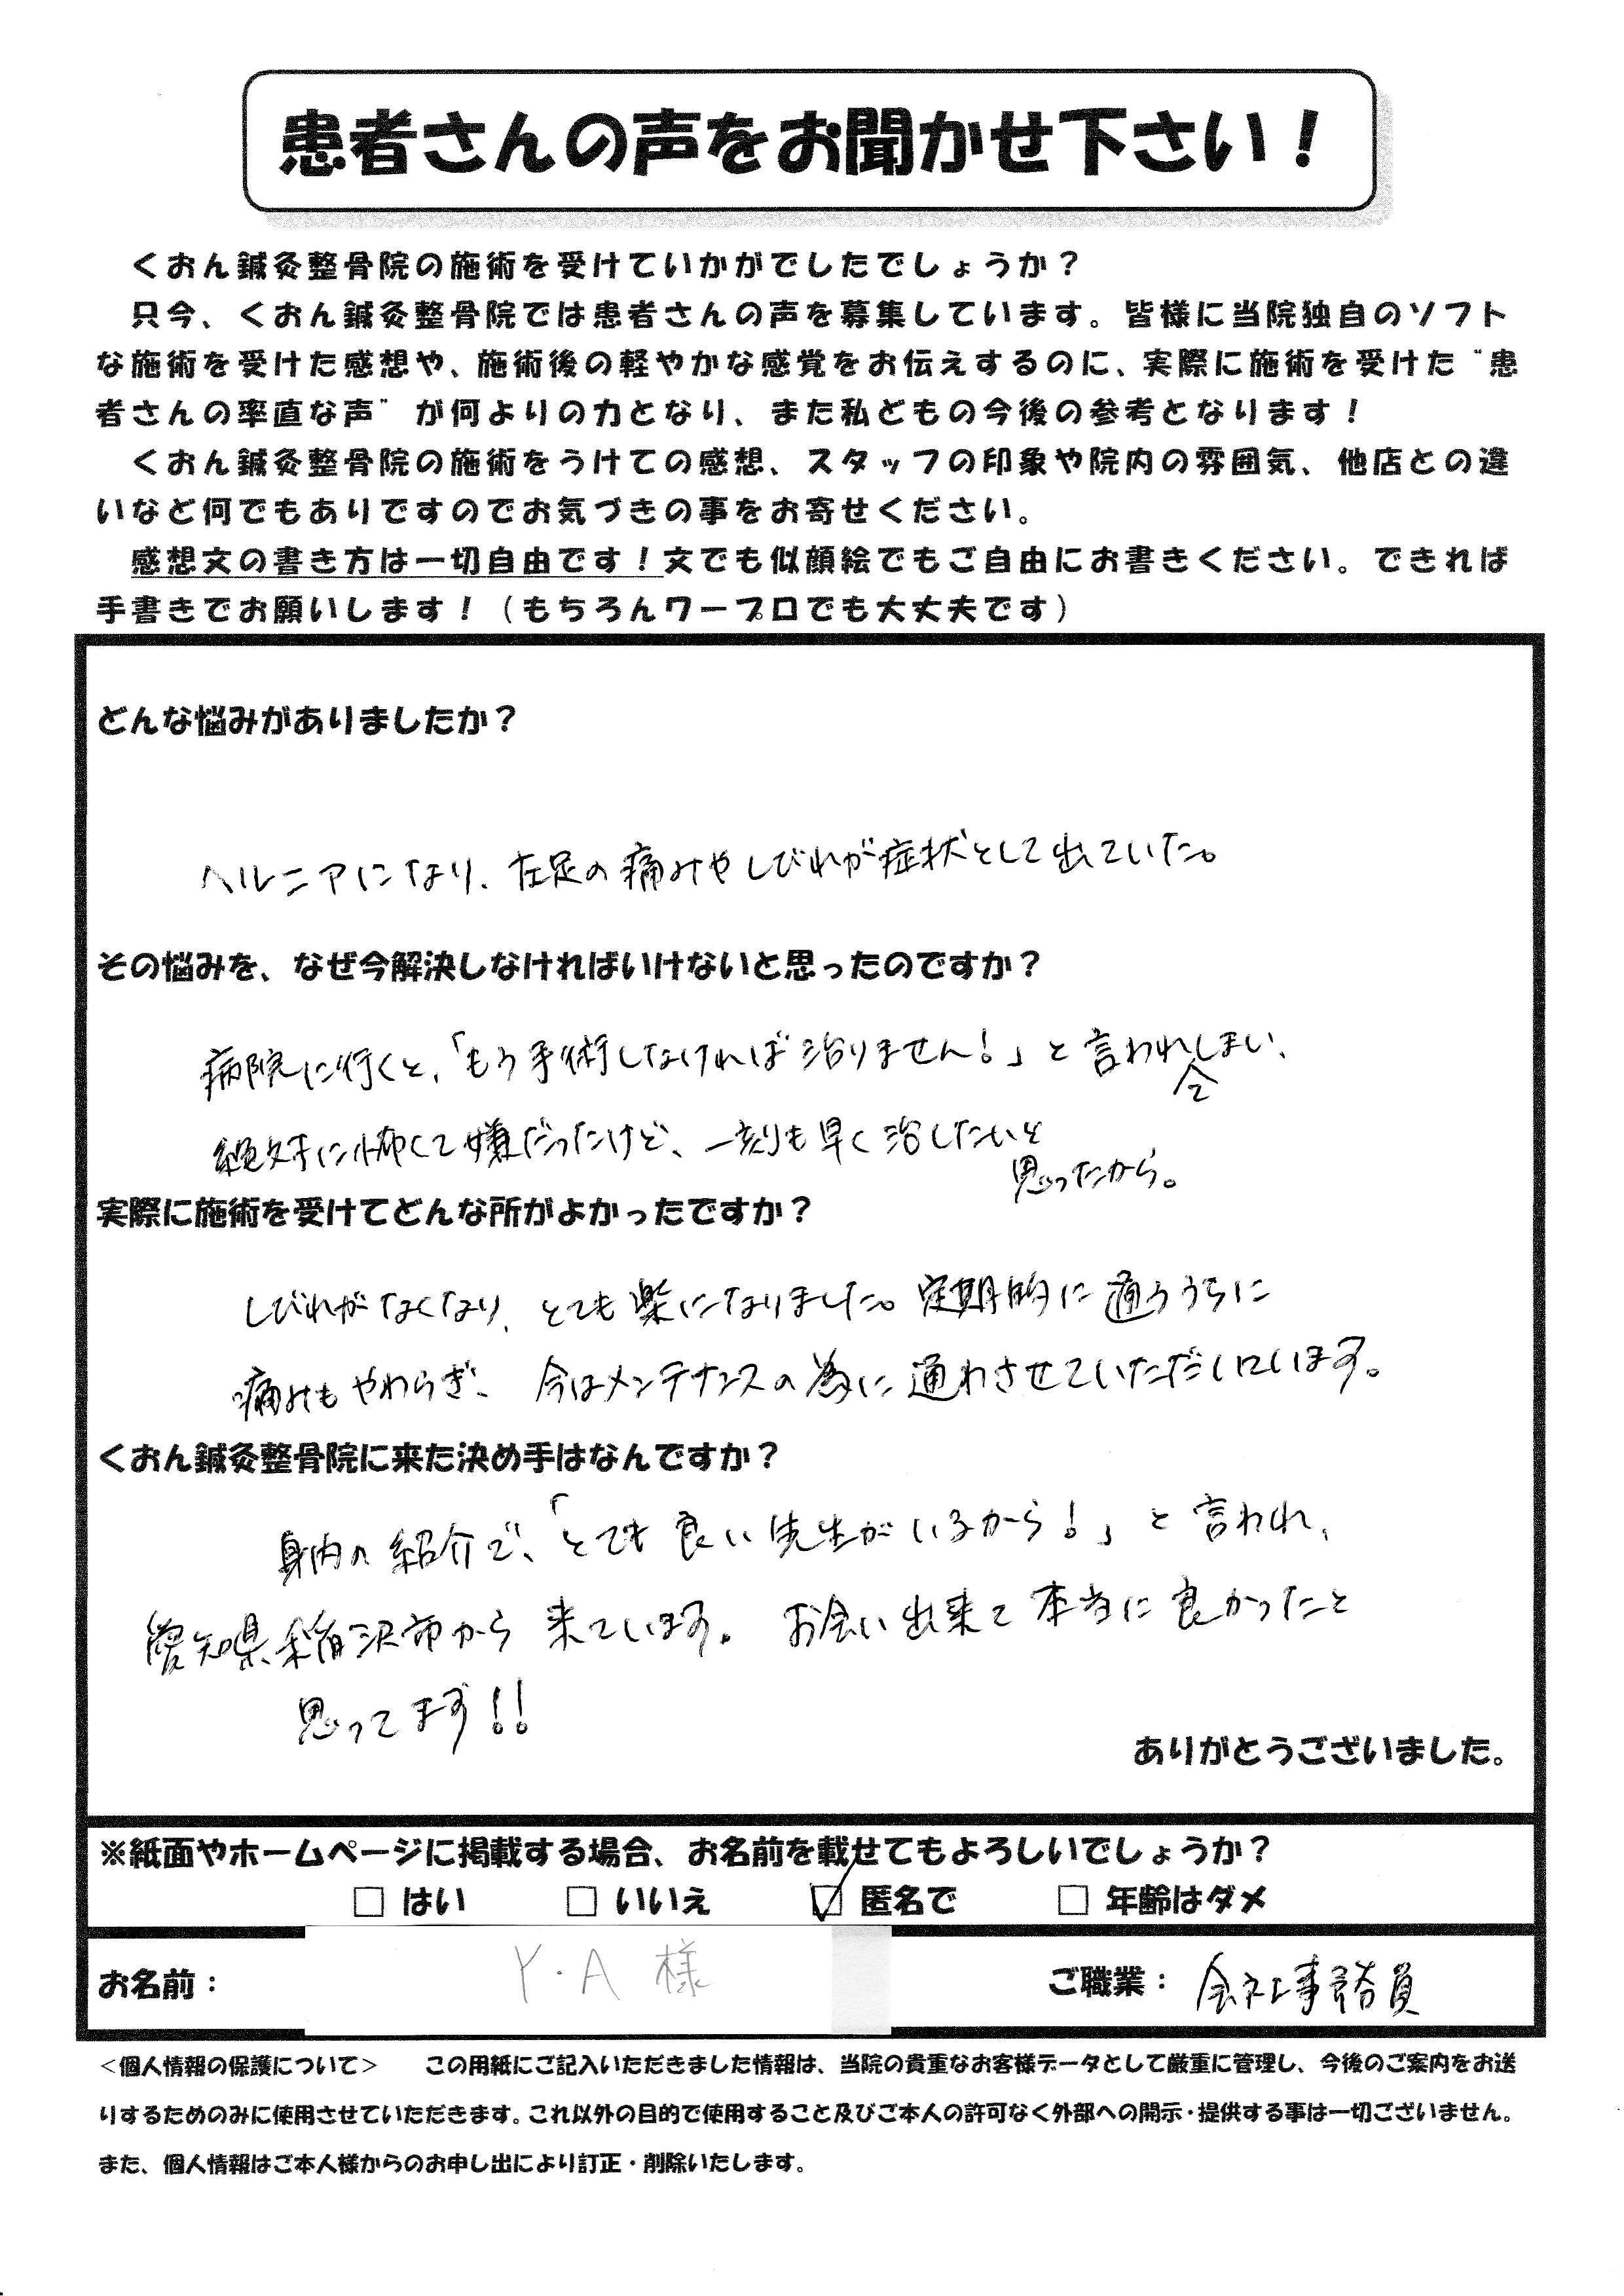 患者さんの声をお聞かせ下さい！
くおん鍼灸整骨院の施術を受けていかがでしたでしょうか？
只今、くおん鍼灸整骨院では患者さんの声を募集しています。皆様に当院独自のソフト
な施術を受けた感想や、施術後の軽やかな感覚をお伝えするのに、実際に施術を受けた“患
者さんの率直な声”が何よりの力となり、また私どもの今後の参考となります！
くおん鍼灸整骨院の施術をうけての感想、スタッフの印象や院内の雰囲気、他店との違
いなど何でもありですのでお気づきの事をお寄せください。
感想文の書き方は一切自由です！文でも似顔絵でもご自由にお書きください。できれば
手書きでお願いします！（もちろんワープロでも大丈夫です）
どんな悩みがありましたか？
ヘルニアになり、左足の痛みやしびれが症状として出ていた。
その悩みを、なぜ今解決しなければいけないと思ったのですか？
病院に行くと、「もう手術しなければ治りません！」と言われてしまい、
絶対に怖くて嫌だったけど、一刻も早く治したいと
思ったから。
実際に施術を受けてどんな所がよかったですか？
しびれがなくなり、とても楽になりました。定期的に通ううちに
痛みもやわらぎ、今はメンテナンスの為に通わさせていただいています。
くおん鍼灸整骨院に来た決め手はなんですか？
身内の紹介で、「とても良い先生がいるから！」と言われ、
愛知県稲沢市から来ています。お会い出来て本当に良かったと
思ってます!!
ありがとうございました。
※紙面やホームページに掲載する場合、お名前を載せてもよろしいでしょうか？
□ はい □ いいえ ☑ 匿名で □ 年齢はダメ
お名前： Y・A 様 ご職業： 会社事務員
＜個人情報の保護について＞ この用紙にご記入いただきました情報は、当院の貴重なお客様データとして厳重に管理し、今後のご案内をお送
りするためのみに使用させていただきます。これ以外の目的で使用すること及びご本人の許可なく外部への開示・提供する事は一切ございません。
また、個人情報はご本人様からのお申し出により訂正・削除いたします。